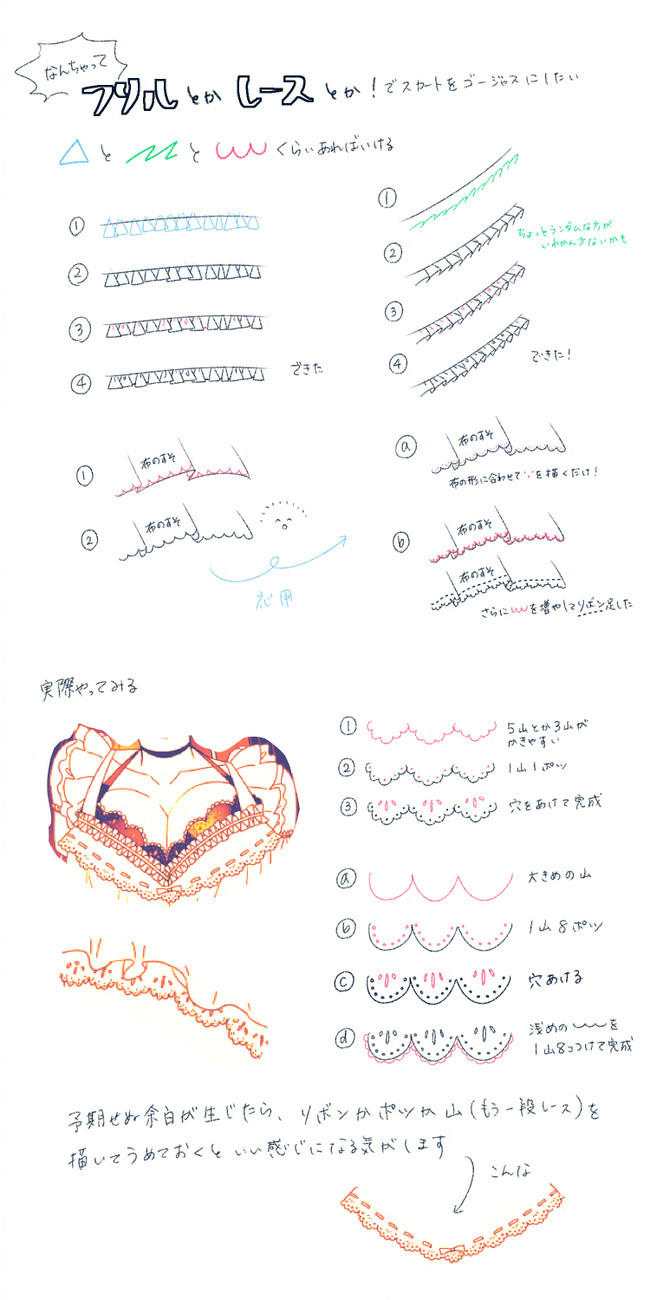 なんちゃって
フリルとかレースとか!でスカートをゴージャスにしたい
とととくらいあればいける
①
②
③
④ できた
①
ちょっとランダムな方が
いわかん少ないかも
②
③
④ できた!
① 布のすそ
② 布のすそ
応用
ⓐ 布のすそ
布の形に合わせてを描くだけ!
ⓑ 布のすそ
布のすそ
さらにを増やしてリボン足した
実際やってみる
① 5山とか3山が
かきやすい
② 1山1ポツ
③ 穴をあけて完成
ⓐ 大きめの山
ⓑ 1山8ポツ
ⓒ 穴あける
ⓓ 浅めのを
1山8コつけて完成
予期せぬ余白が生じたら、リボンかポツか山(もう一段レース)を
描いてうめておくといい感じになる気がします
こんな